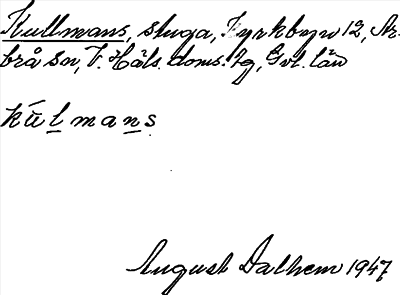 Kullmans, stuga, Kyrkbyn 12, Ar-
brå sn, V. Häls. doms. hg, Gvl. län
kúlmans
August Dalhem 1947